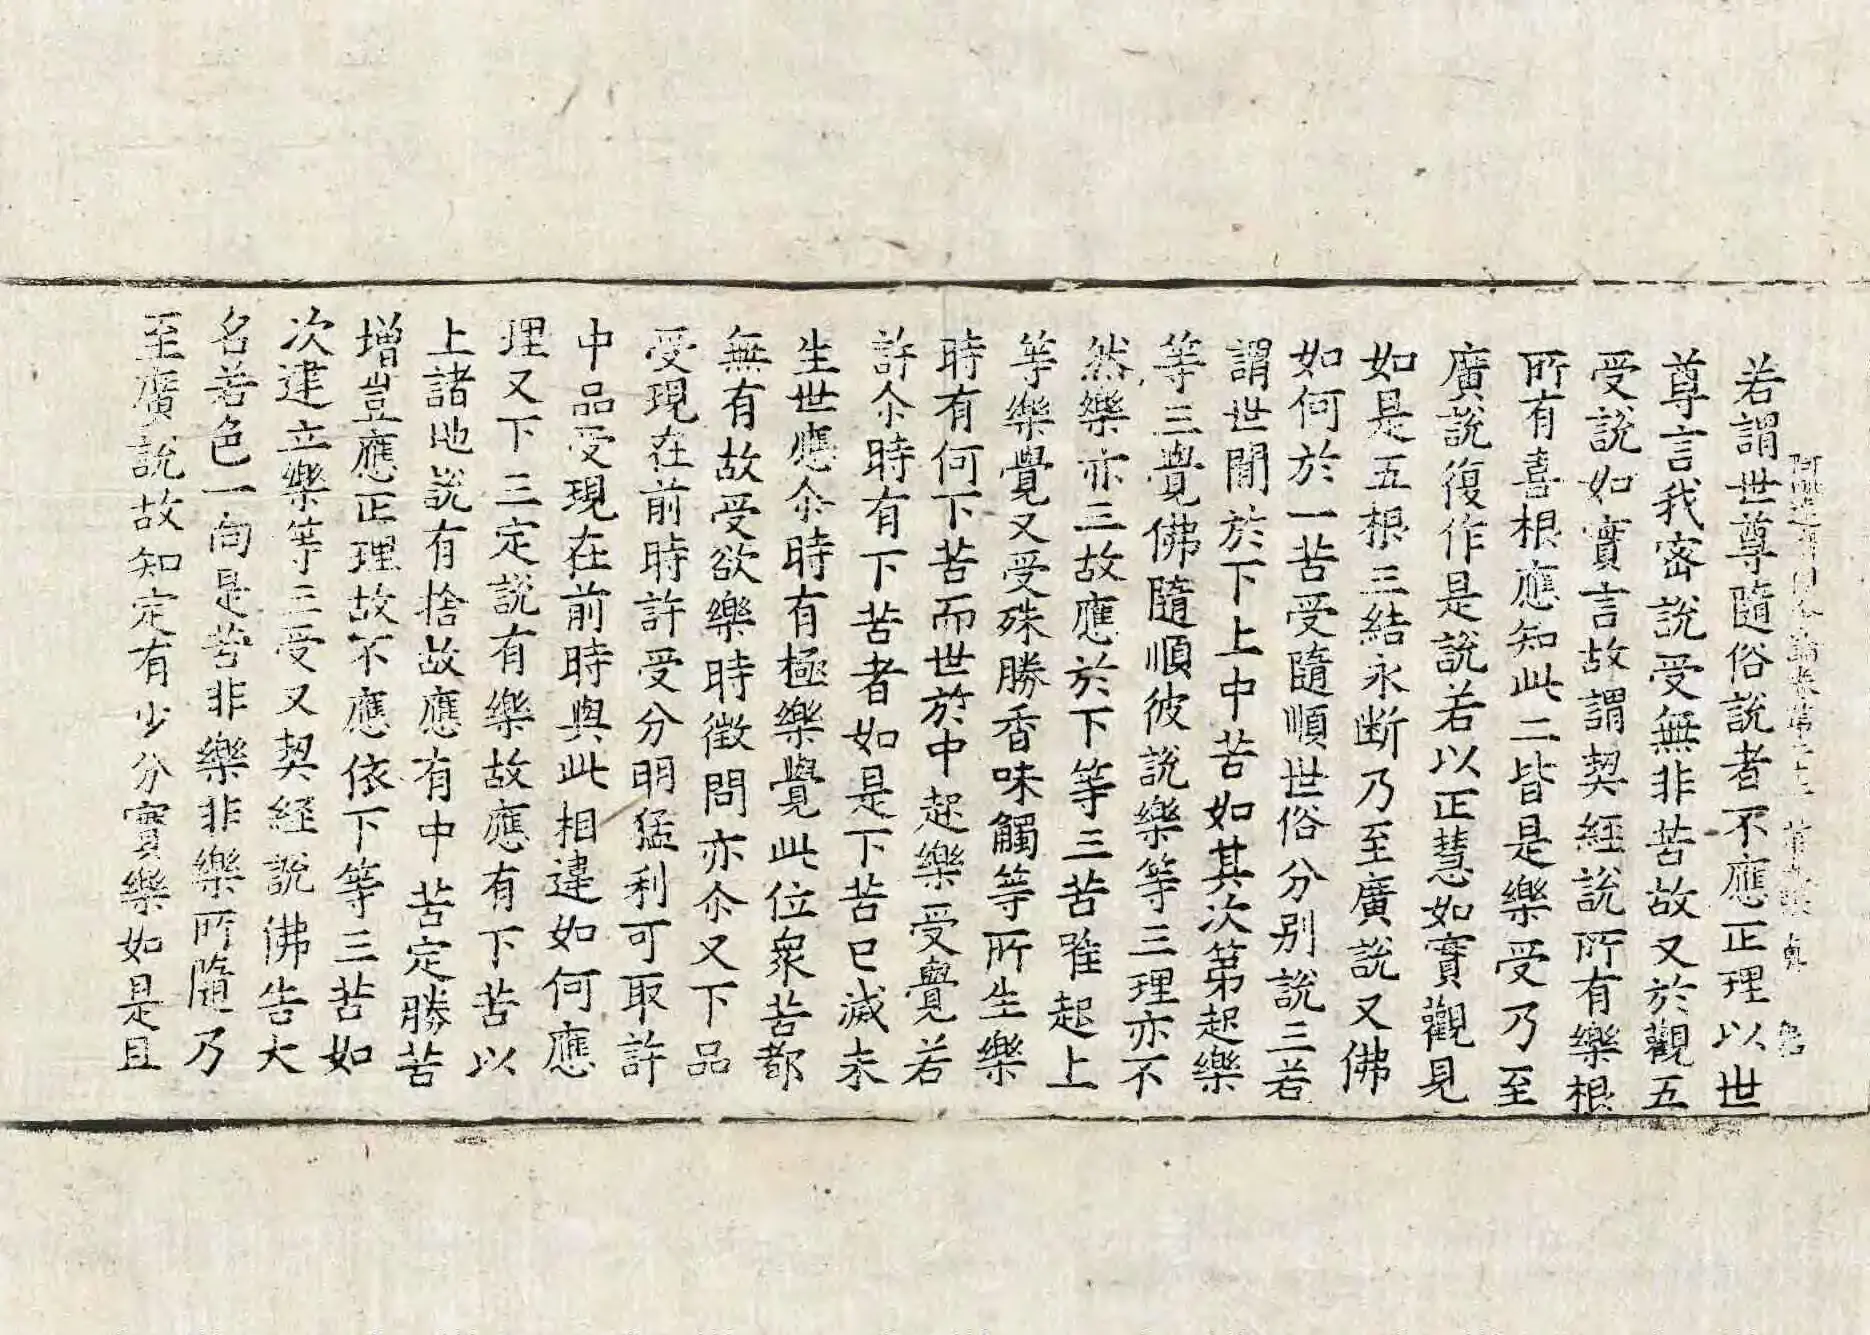 阿達論卷第二十二
若謂世尊隨俗說者不應正理以世
尊言我密說受無非苦故又於觀五
受說如實言故謂契經說所有樂根
所有喜根應知此二皆是樂受乃至
廣說復作是說若以正慧如實觀見
如是五根三結永斷乃至廣說又佛
如何於一苦受隨順世俗分別說三若
謂世閒於下上中苦如其次第起樂
等三覺佛隨順彼說樂等三理亦不
然樂亦三故應於下等三苦唯起上
等樂覺又受殊勝香味觸等所生樂
時有何下苦而世於中起樂受覺若
許尒時有下苦者如是下苦已滅未
生世應尒時有極樂覺此位衆苦都
無有故受欲樂時徵問亦尒又下品
受現在前時許受分明猛利可取許
中品受現在前時與此相違如何應
理又下三定說有樂故應有下苦以
上諸地說有捨故應有中苦定勝苦
增豈應正理故不應依下等三苦如
次建立樂等三受又契經說佛告大
名若色一向是苦非樂非樂所隨乃
至廣說故知定有少分實樂如是且